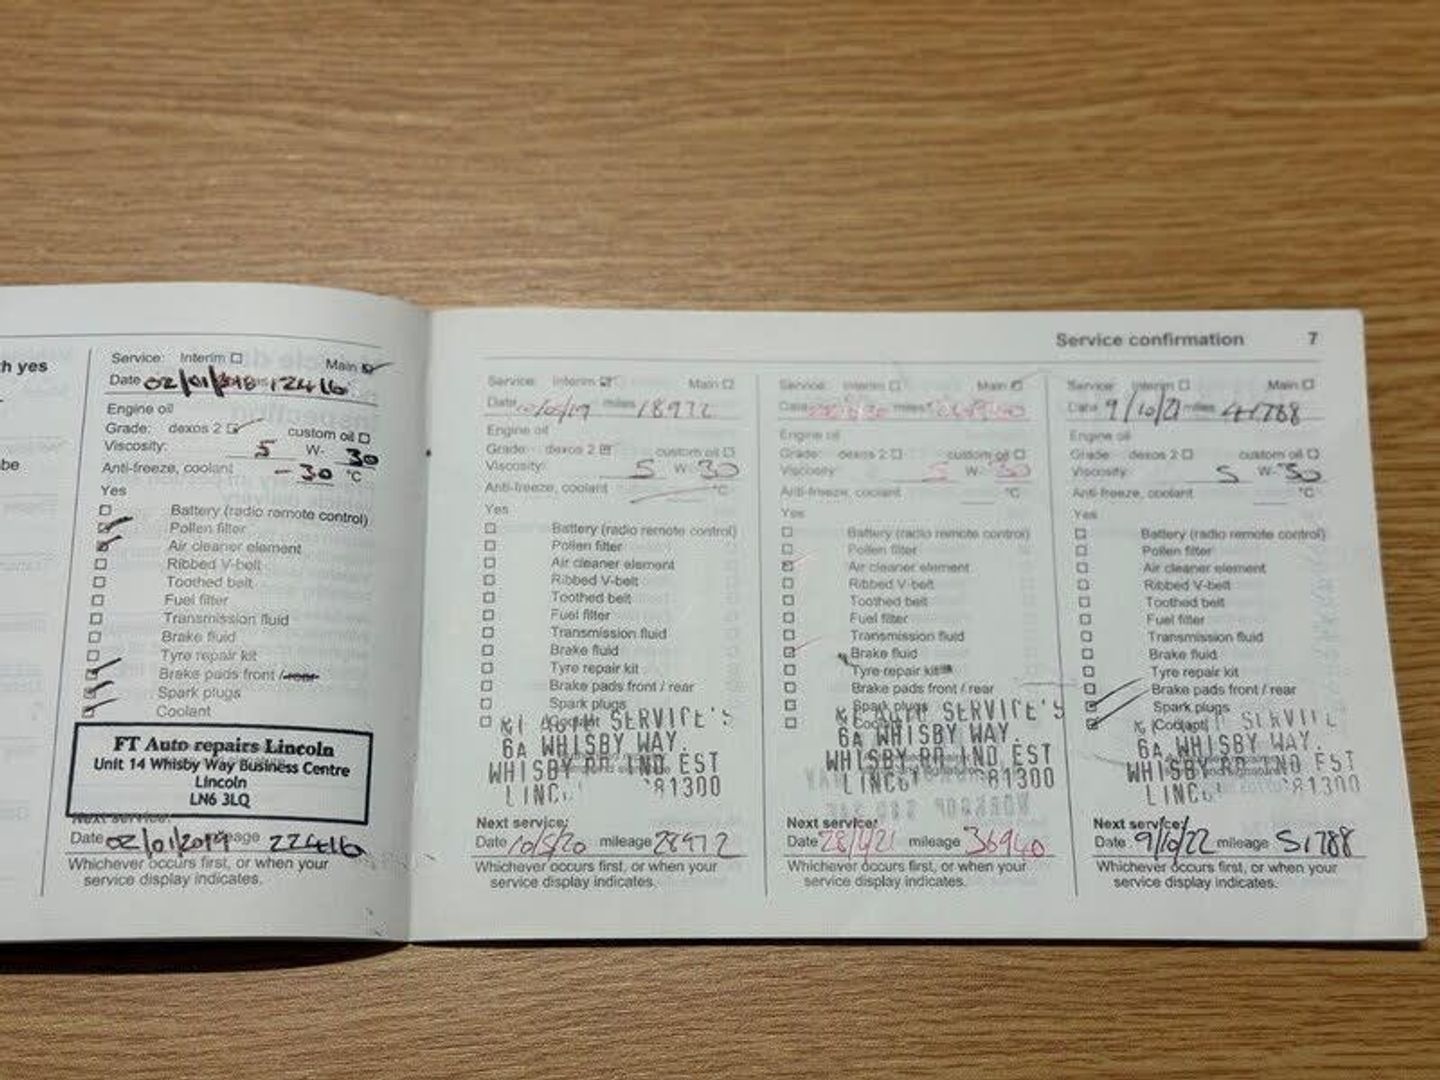 th yes
be
Service: Interim Main
Date 02/01/2018 12416
Engine oil
Grade: dexos 2 custom oil
Viscosity: 5 W- 30
Anti-freeze, coolant -30 °C
Yes
Battery (radio remote control)
Pollen filter
Air cleaner element
Ribbed V-belt
Toothed belt
Fuel filter
Transmission fluid
Brake fluid
Tyre repair kit
Brake pads front / rear
Spark plugs
Coolant
FT Auto repairs Lincoln
Unit 14 Whisby Way Business Centre
Lincoln
LN6 3LQ
Next service:
Date 02/01/2019 mileage 22416
Whichever occurs first, or when your
service display indicates.
Service confirmation 7
Service: Interim Main
Date 10/05/19 miles 18972
Engine oil
Grade: dexos 2 custom oil
Viscosity: 5 W- 30
Anti-freeze, coolant °C
Yes
Battery (radio remote control)
Pollen filter
Air cleaner element
Ribbed V-belt
Toothed belt
Fuel filter
Transmission fluid
Brake fluid
Tyre repair kit
Brake pads front / rear
Spark plugs
Coolant
SERVICE'S
6A WHISBY WAY.
WHISBY RD IND EST
81300
Next service:
Date 10/5/20 mileage 28972
Whichever occurs first, or when your
service display indicates.
Service: Interim Main
Date miles
Engine oil
Grade: dexos 2 custom oil
Viscosity: 5 W- 30
Anti-freeze, coolant °C
Yes
Battery (radio remote control)
Pollen filter
Air cleaner element
Ribbed V-belt
Toothed belt
Fuel filter
Transmission fluid
Brake fluid
Tyre repair kit
Brake pads front / rear
Spark plugs
Coolant
SERVICE'S
6A WHISBY WAY.
WHISBY RD IND EST
81300
Next service:
Date mileage 36940
Whichever occurs first, or when your
service display indicates.
Service: Interim Main
Date 9/10/21 miles 41788
Engine oil
Grade: dexos 2 custom oil
Viscosity: 5 W- 30
Anti-freeze, coolant °C
Yes
Battery (radio remote control)
Pollen filter
Air cleaner element
Ribbed V-belt
Toothed belt
Fuel filter
Transmission fluid
Brake fluid
Tyre repair kit
Brake pads front / rear
Spark plugs
Coolant
6A WHISBY WAY.
WHISBY RD IND EST
81300
Next service:
Date 9/10/22 mileage 51788
Whichever occurs first, or when your
service display indicates.